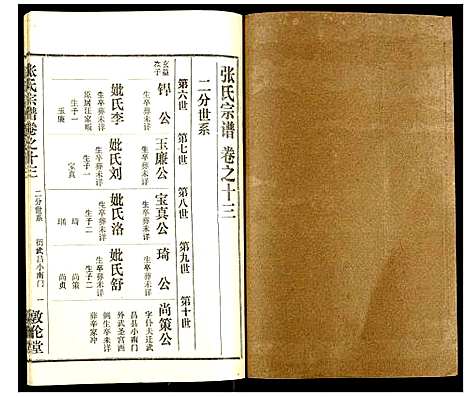 张氏宗谱 卷之十三
二分世系
第六世
第七世
第八世
第九世
第十世
玄益
次子
锃公
生卒葬未详
妣氏李
生卒葬未详
生子一
玉廉
玉廉公
生卒葬未详
妣氏刘
生卒葬未详
生子一
宝真
宝真公
生卒葬未详
妣氏洛
生卒葬未详
生子二
琦
琦公
生卒葬未详
妣氏舒
生卒葬未详
生子二
尚策
尚贞
尚策公
字仆夫迁武
昌县小南门
外武圣宫西
薛卒家冲
张氏宗谱卷之十三
二分世系
衍武昌小南门
一
敦伦堂